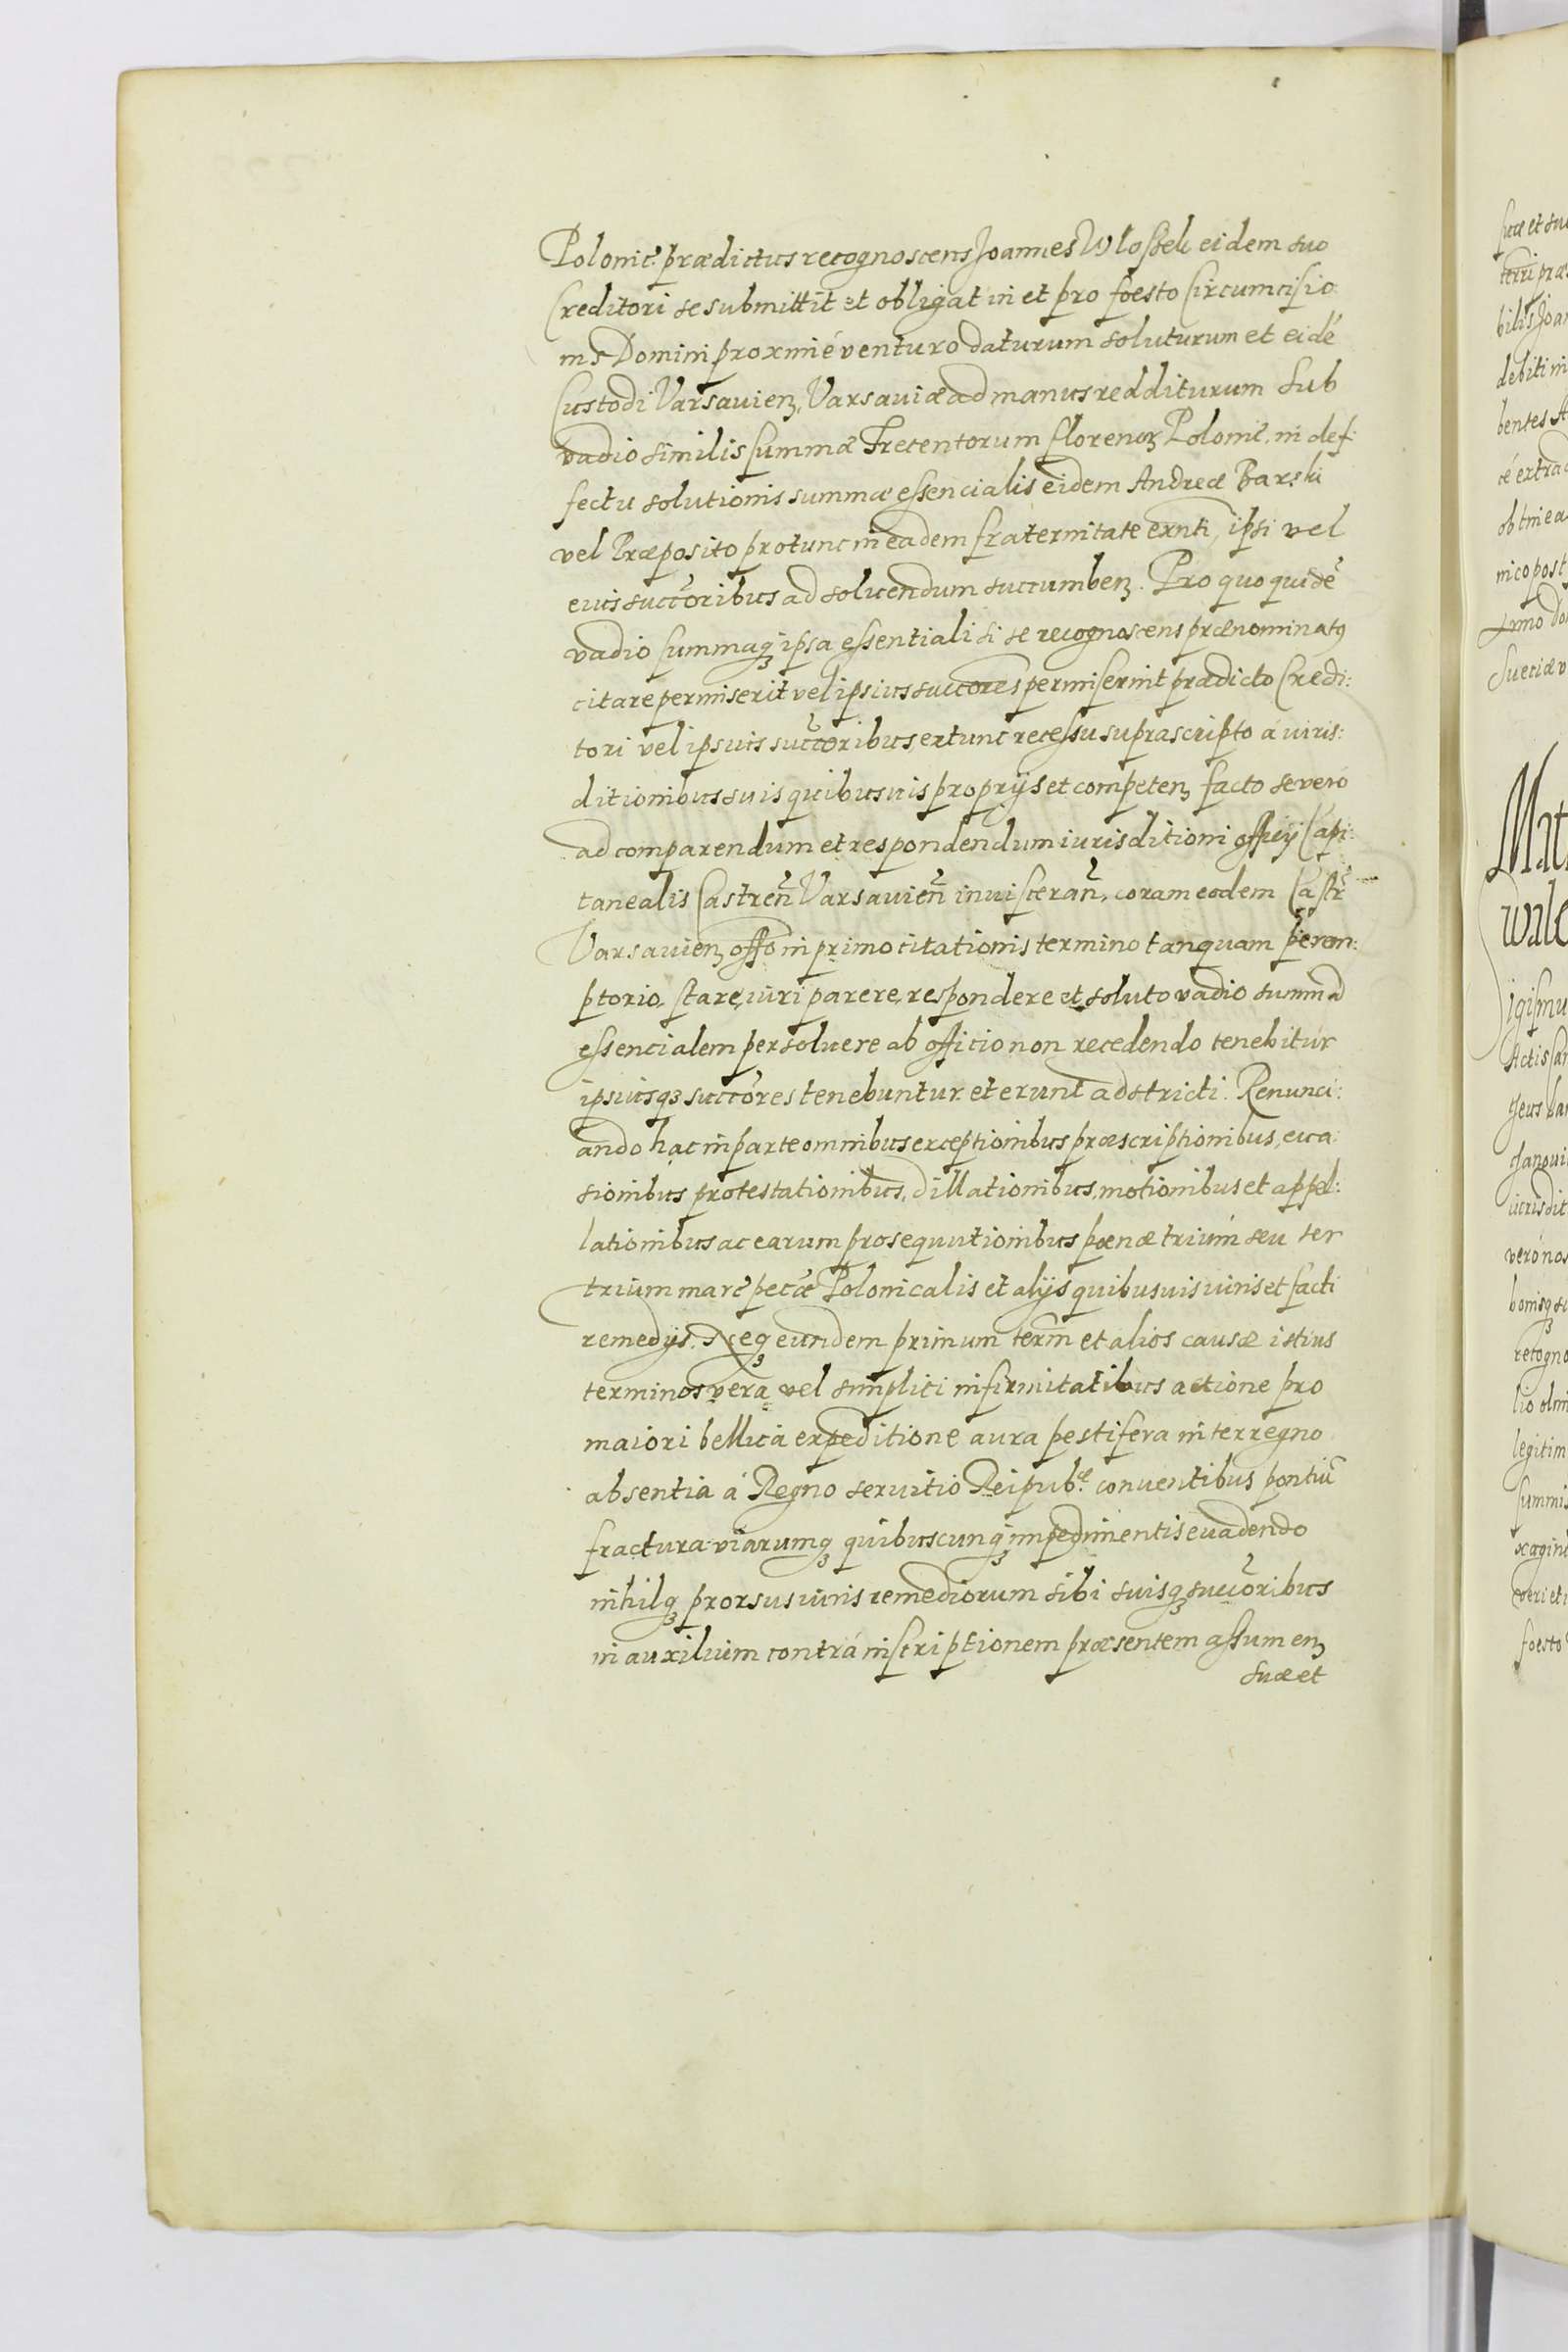 Polonic̃. prædictus recognoscens Joannes Wlossek eidem suo
Creditori se submittit et obligat in et pro foesto Circumcisio
nis Domini proximé venturo daturum soluturum et eidẽ
Custodi Varsauienꝫ, Varsauiæ ad manus redditurum Sub
vadio similis summæ Trecentorum florenoꝝ Polonic̃. in def:
fectu solutionis summæ essencialis eidem Andreæ Barski
vel Præposito protunc in eadem fraternitate exñti, ipsi vel
eius succ̃oribus ad soluendum succumbenꝫ. Pro quo quidẽ
vadio summaqꝫ ipsa essentiali si se recognoscens prænominatꝰ
citare permiserit vel ipsius succores permiserint prædicto Credi:
tori vel ipsius succ̃oribus, extunc recessu suprascripto á iuris:
ditionibus suis quibusuis proprijs et competenꝫ facto se vero
ad comparendum et respondendum iurisditioni officij Capi:
tanealis Castreñ Varsauieñ inuisceratñ, coram eodem Castr̃
Varsauienꝫ offo in primo citationis termino tanquam perem:
ptorio, stare, iuri parere, respondere et soluto vadio summã
essencialem persoluere ab officio non recedendo tenebitur
ipsiusqꝫ succ̃ores tenebuntur et erunt adstricti. Renunci:
ando hac in parte omnibus exceptionibus præscriptionibus, euca
sionibus protestationibus, dillationibus, motionibus et appel:
lationibus ac earum prosequutionibus poenæ trium seu ter
trium marc̃ pecũæ Polonicalis et alijs quibusuis iuris et facti
remedijs. Neqꝫ eundem primum term̃ et alios causæ istius
terminos vera vel simplici infirmitatibus actione pro
maiori bellica expeditione aura pestifera interregno
absentia á Regno seruitio Reipub.ͨæ conuentibus pontiũ
fractura viarumqꝫ quibuscunqꝫ impedimentis euadendo
nihilqꝫ prorsus iuris remediorum sibi suisqꝫ succ̃oribus
in auxilium contrá inscriptionem præsentem assumenꝫ
suæ et